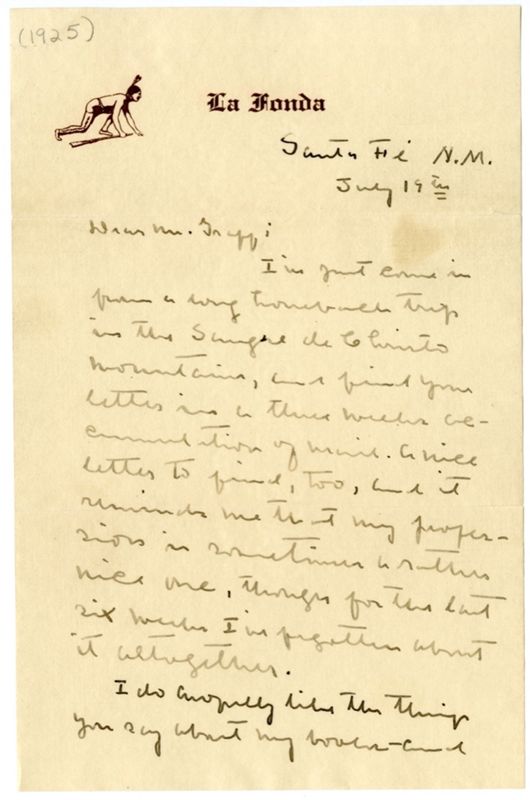 (1925)
La Fonda
Santa Fé N.M.
July 19th
Dear Mr. Graff:
I've just come in
from a long horseback trip
in the Sangre de Christo
mountains, and find your
letter in a three weeks ac-
cumulation of mail. A nice
letter to find, too, and it
reminds me that my profes-
sion is sometimes a rather
nice one, though for the last
six weeks I've forgotten about
it altogether.
I do awfully like the things
you say about my books—and